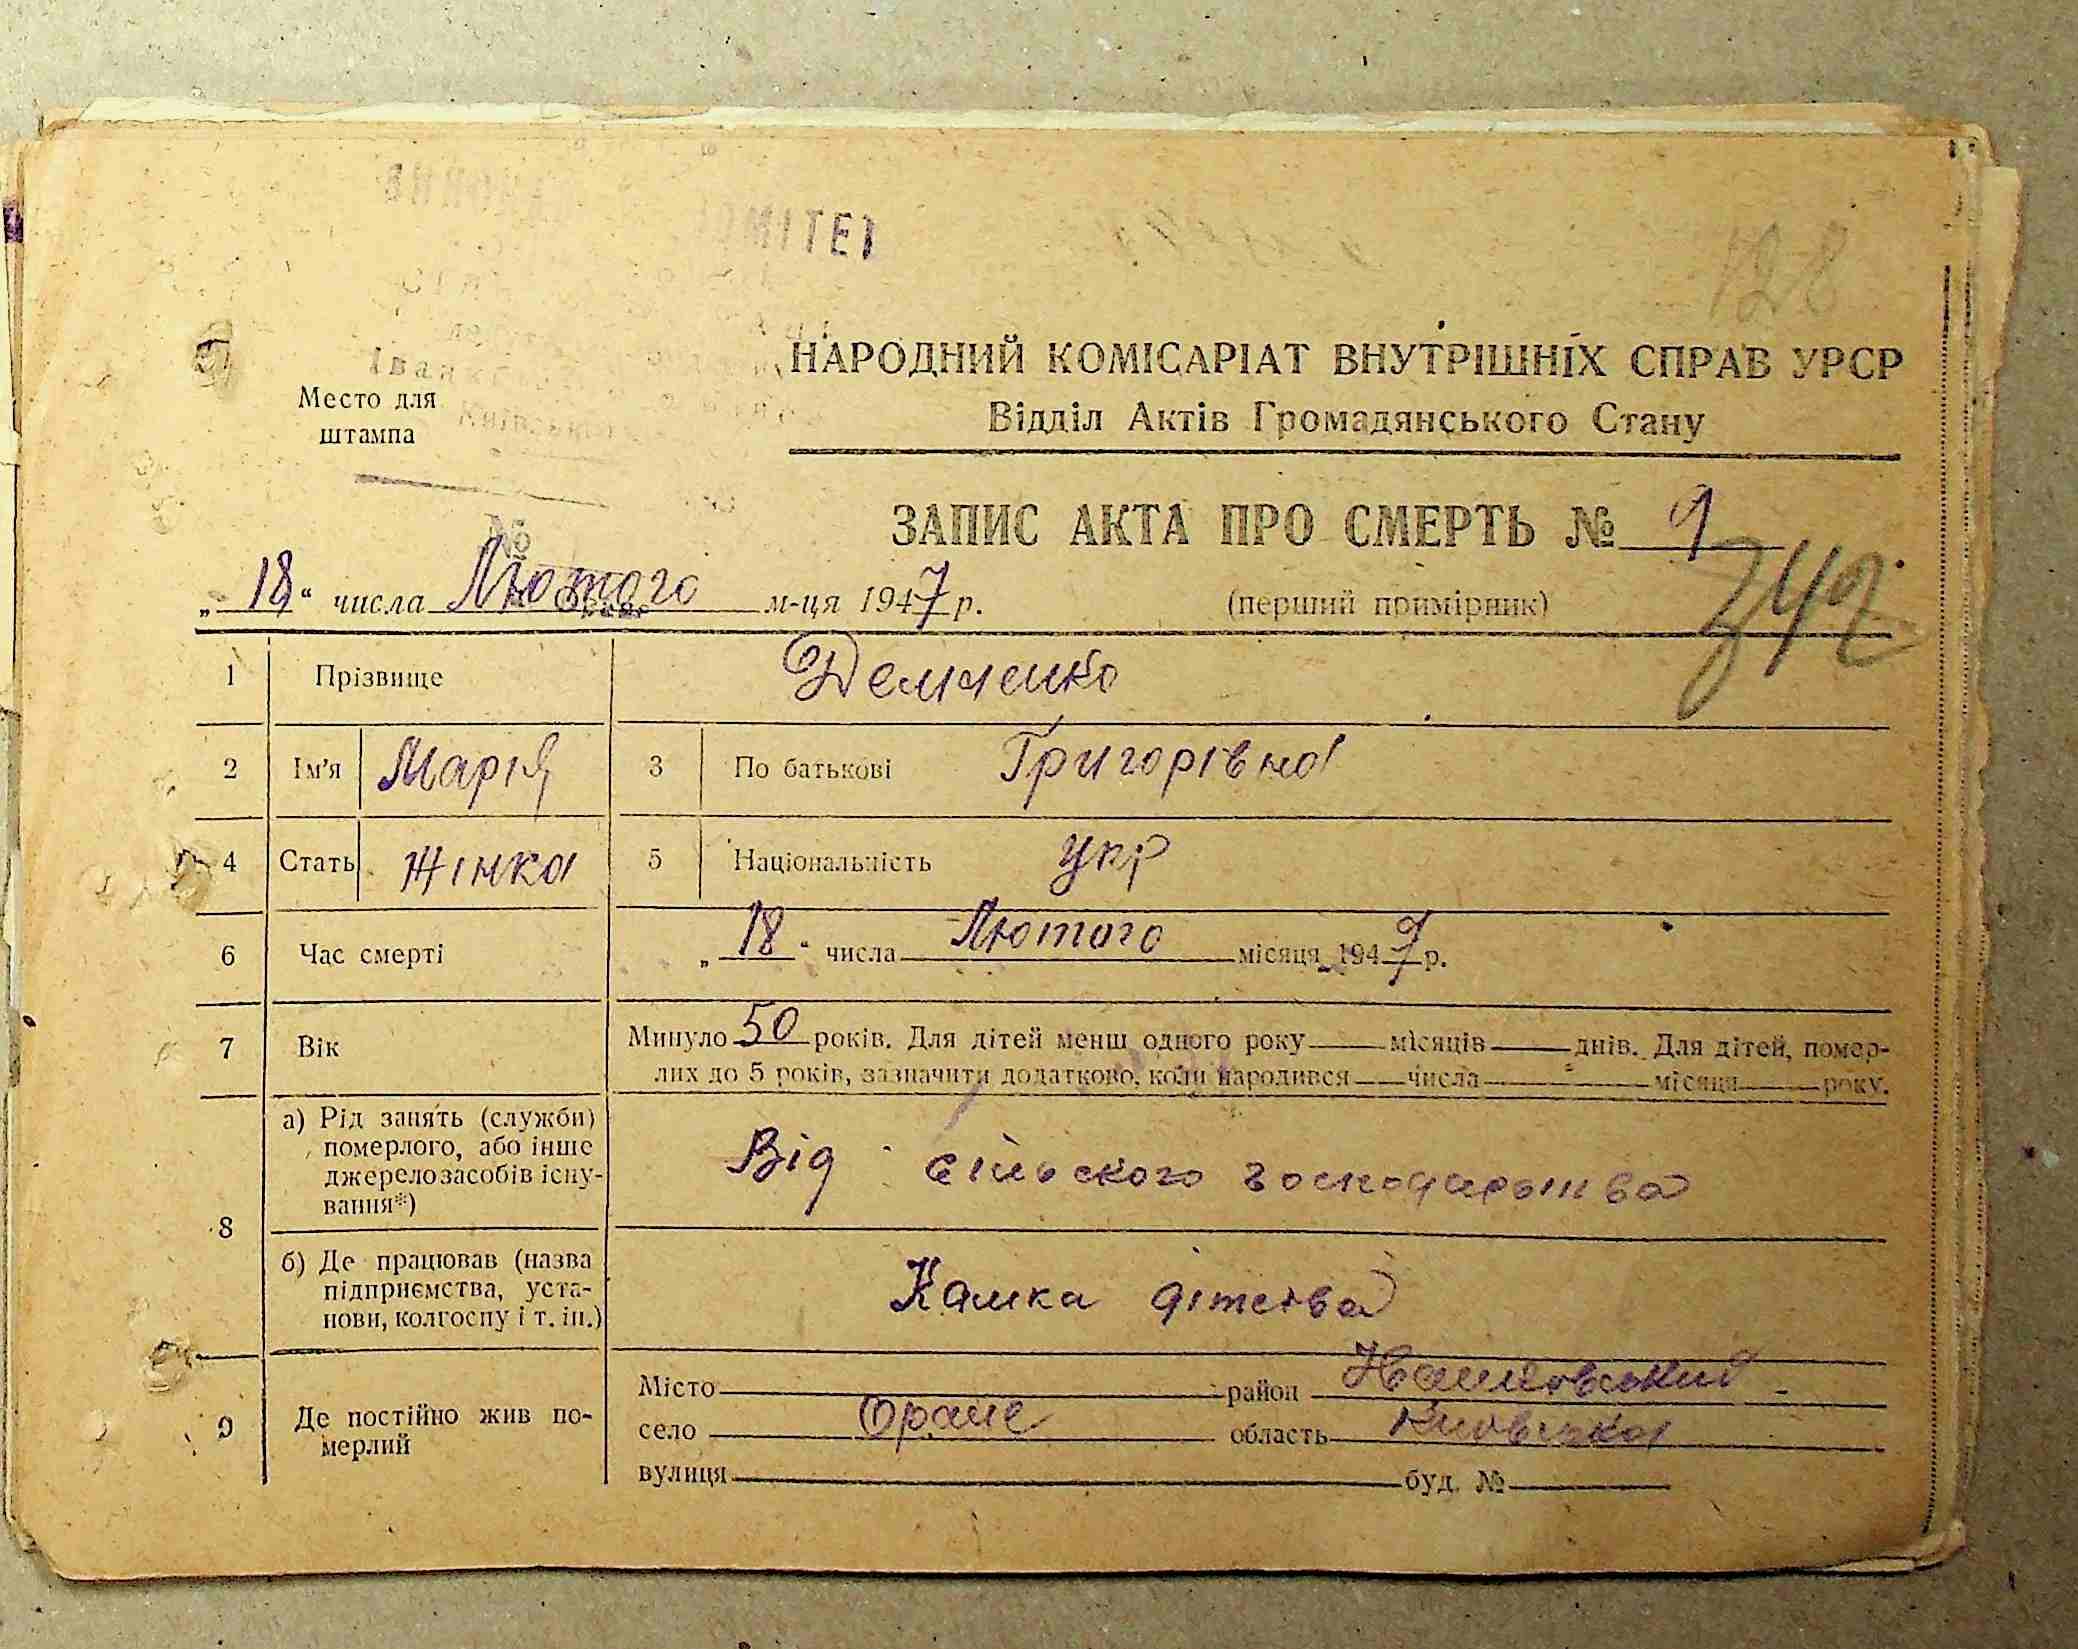 ОМІТЕТ
128
НАРОДНИЙ КОМІСАРІАТ ВНУТРІШНІХ СПРАВ УРСР
Место для
штампа
Відділ Актів Громадянського Стану
ЗАПИС АКТА ПРО СМЕРТЬ № 9
№
„18“ числа Лютого м-ця 1947 р. (перший примірник)
1 Прізвище Демченко
2 Ім'я Марія 3 По батькові Григорівна
4 Стать жінка 5 Національність укр
6 Час смерті „18“ числа Лютого місяця 1947 р.
7 Вік Минуло 50 років. Для дітей менш одного року місяців днів. Для дітей, помер-
лих до 5 років, зазначити додатково, коли народився числа місяця року.
8 а) Рід занять (служби)
померлого, або інше
джерело засобів існу-
вання*)
Від сільского господарства
б) Де працював (назва
підприємства, уста-
нови, колгоспу і т. ін.)
Камка дітства
9 Де постійно жив по-
мерлий
Місто район
село Оране область Київська
вулиця буд. №